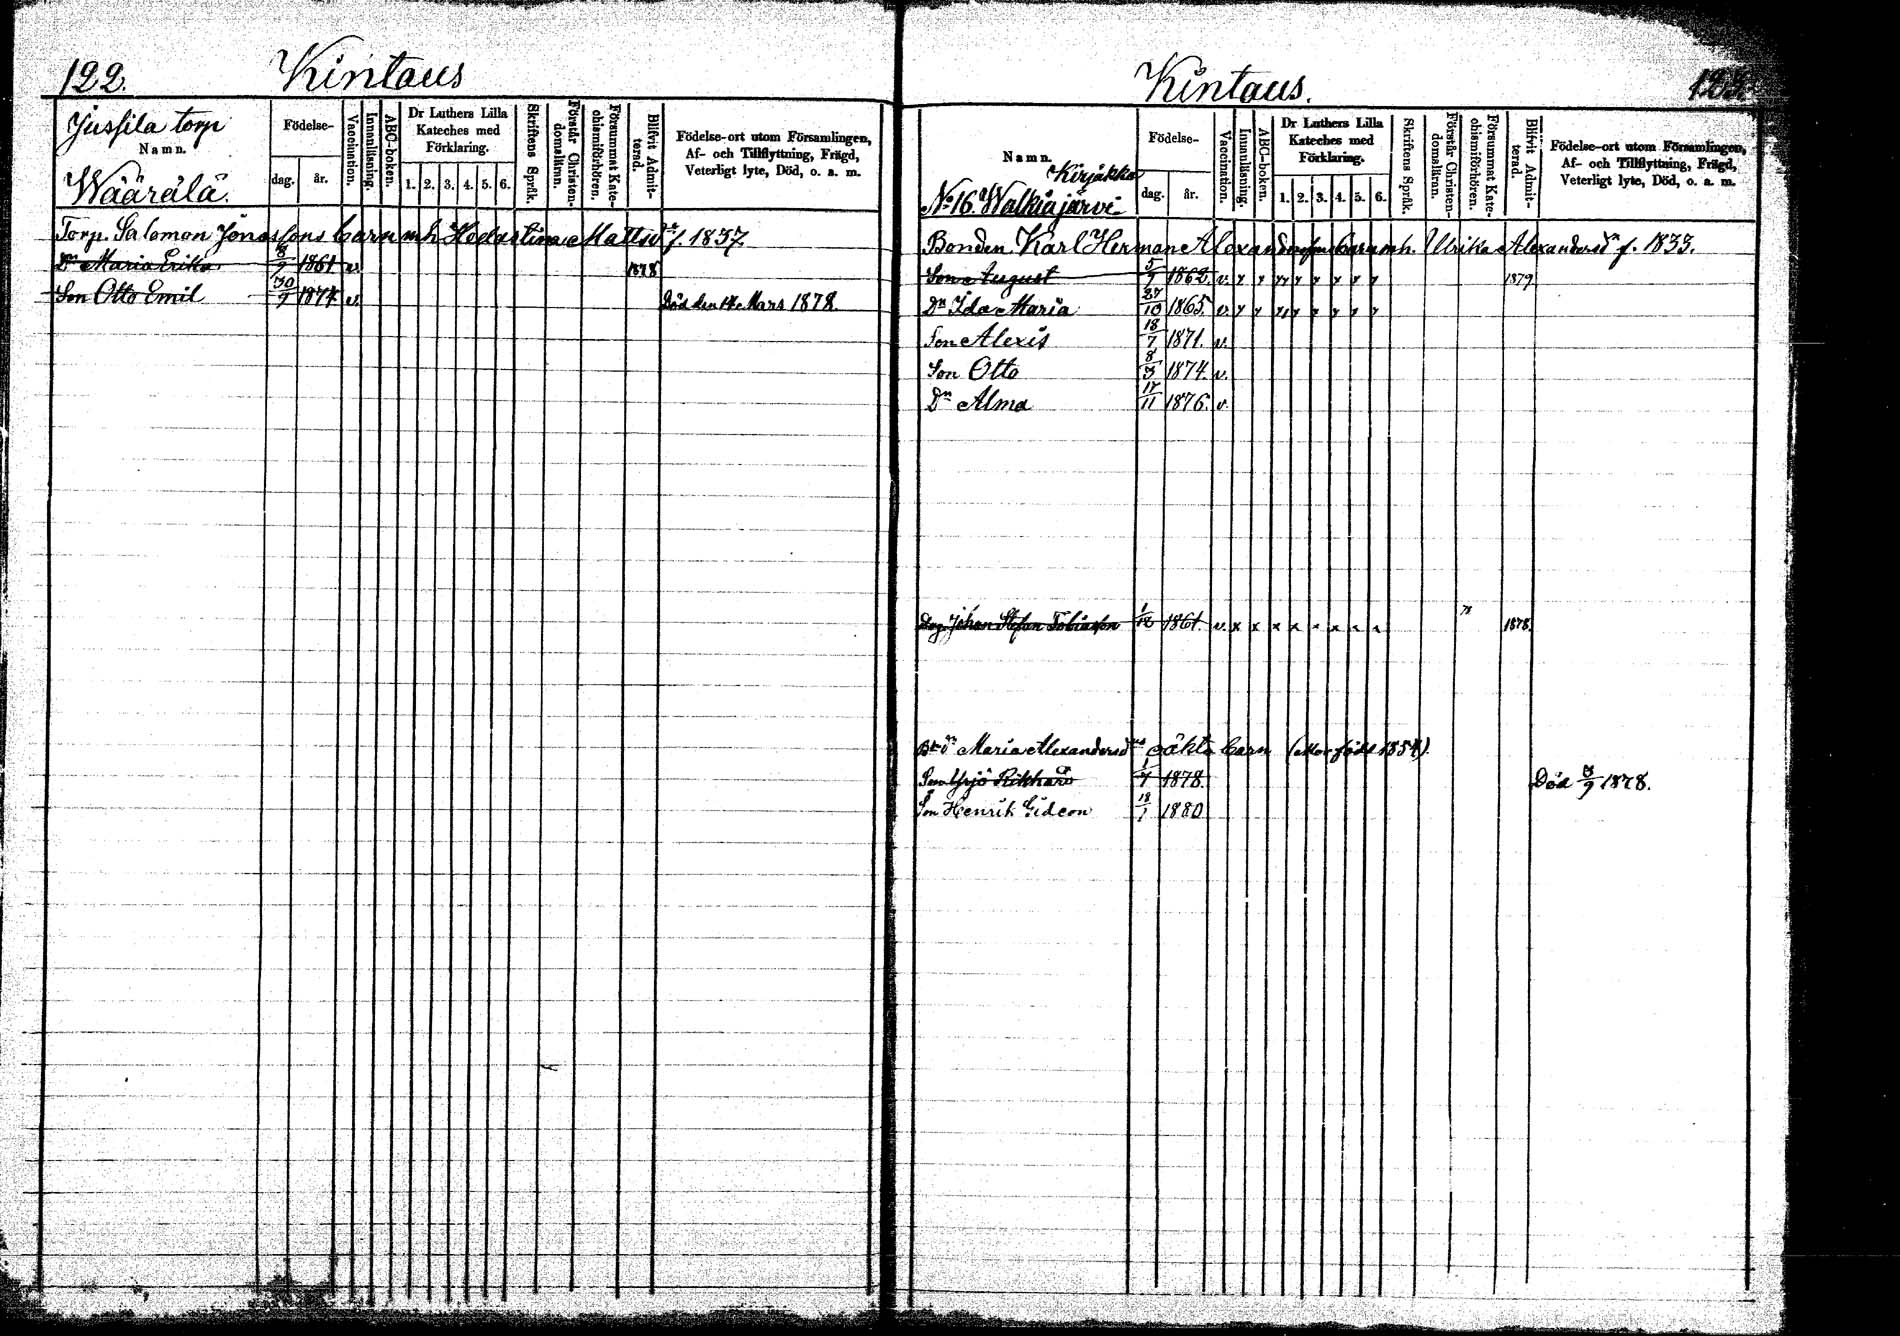 122.
Kintaus
Jussila torp
Namn.
Wäärälä.
Födelse-
dag. år.
Vaccination.
Innanläsning.
ABC-boken.
Dr Luthers Lilla
Kateches med
Förklaring.
1. 2. 3. 4. 5. 6.
Skriftens Språk.
Förstår Christen-
domsläran.
Försummat Kate-
chismiförhören.
Blifvit Admit-
terad.
Födelse-ort utom Församlingen,
Af- och Tillflyttning, Frägd,
Veterligt lyte, Död, o. a. m.
Torp. Salomon Jonassons barn mh. Hedastina Mattsdr f. 1837
Dr Maria Erika 8/9 1861 v. 1878
Son Otto Emil 30/9 1874 v. Död den 14 Mars 1878.
Kintaus.
123.
Namn.
Kirjakka
No 16. Walkiajärvi
Födelse-
dag. år.
Vaccination.
Innanläsning.
ABC-boken.
Dr Luthers Lilla
Kateches med
Förklaring.
1. 2. 3. 4. 5. 6.
Skriftens Språk.
Förstår Christen-
domsläran.
Försummat Kate-
chismiförhören.
Blifvit Admit-
terad.
Födelse-ort utom Församlingen,
Af- och Tillflyttning, Frägd,
Veterligt lyte, Död, o. a. m.
Bonden Karl Herman Alexanderssons barn mh. Ulrika Alexandersdr f. 1833.
Son August 5/9 1862. v. 1879
Dr Ida Maria 27/10 1865. v.
Son Alexis 18/7 1871. v.
Son Otto 8/3 1874. v.
Dr Alma 17/11 1876. v.
Drg. Johan Stefan Tobiasson 1/12 1861. v. x x x x x x x x 78 1878.
Bdr Maria Alexandersdrs oäkta barn (Mor född 1854).
Son Yrjö Rikhard 1/7 1878. Död 3/9 1878.
Son Henrik Gideon 18/1 1880